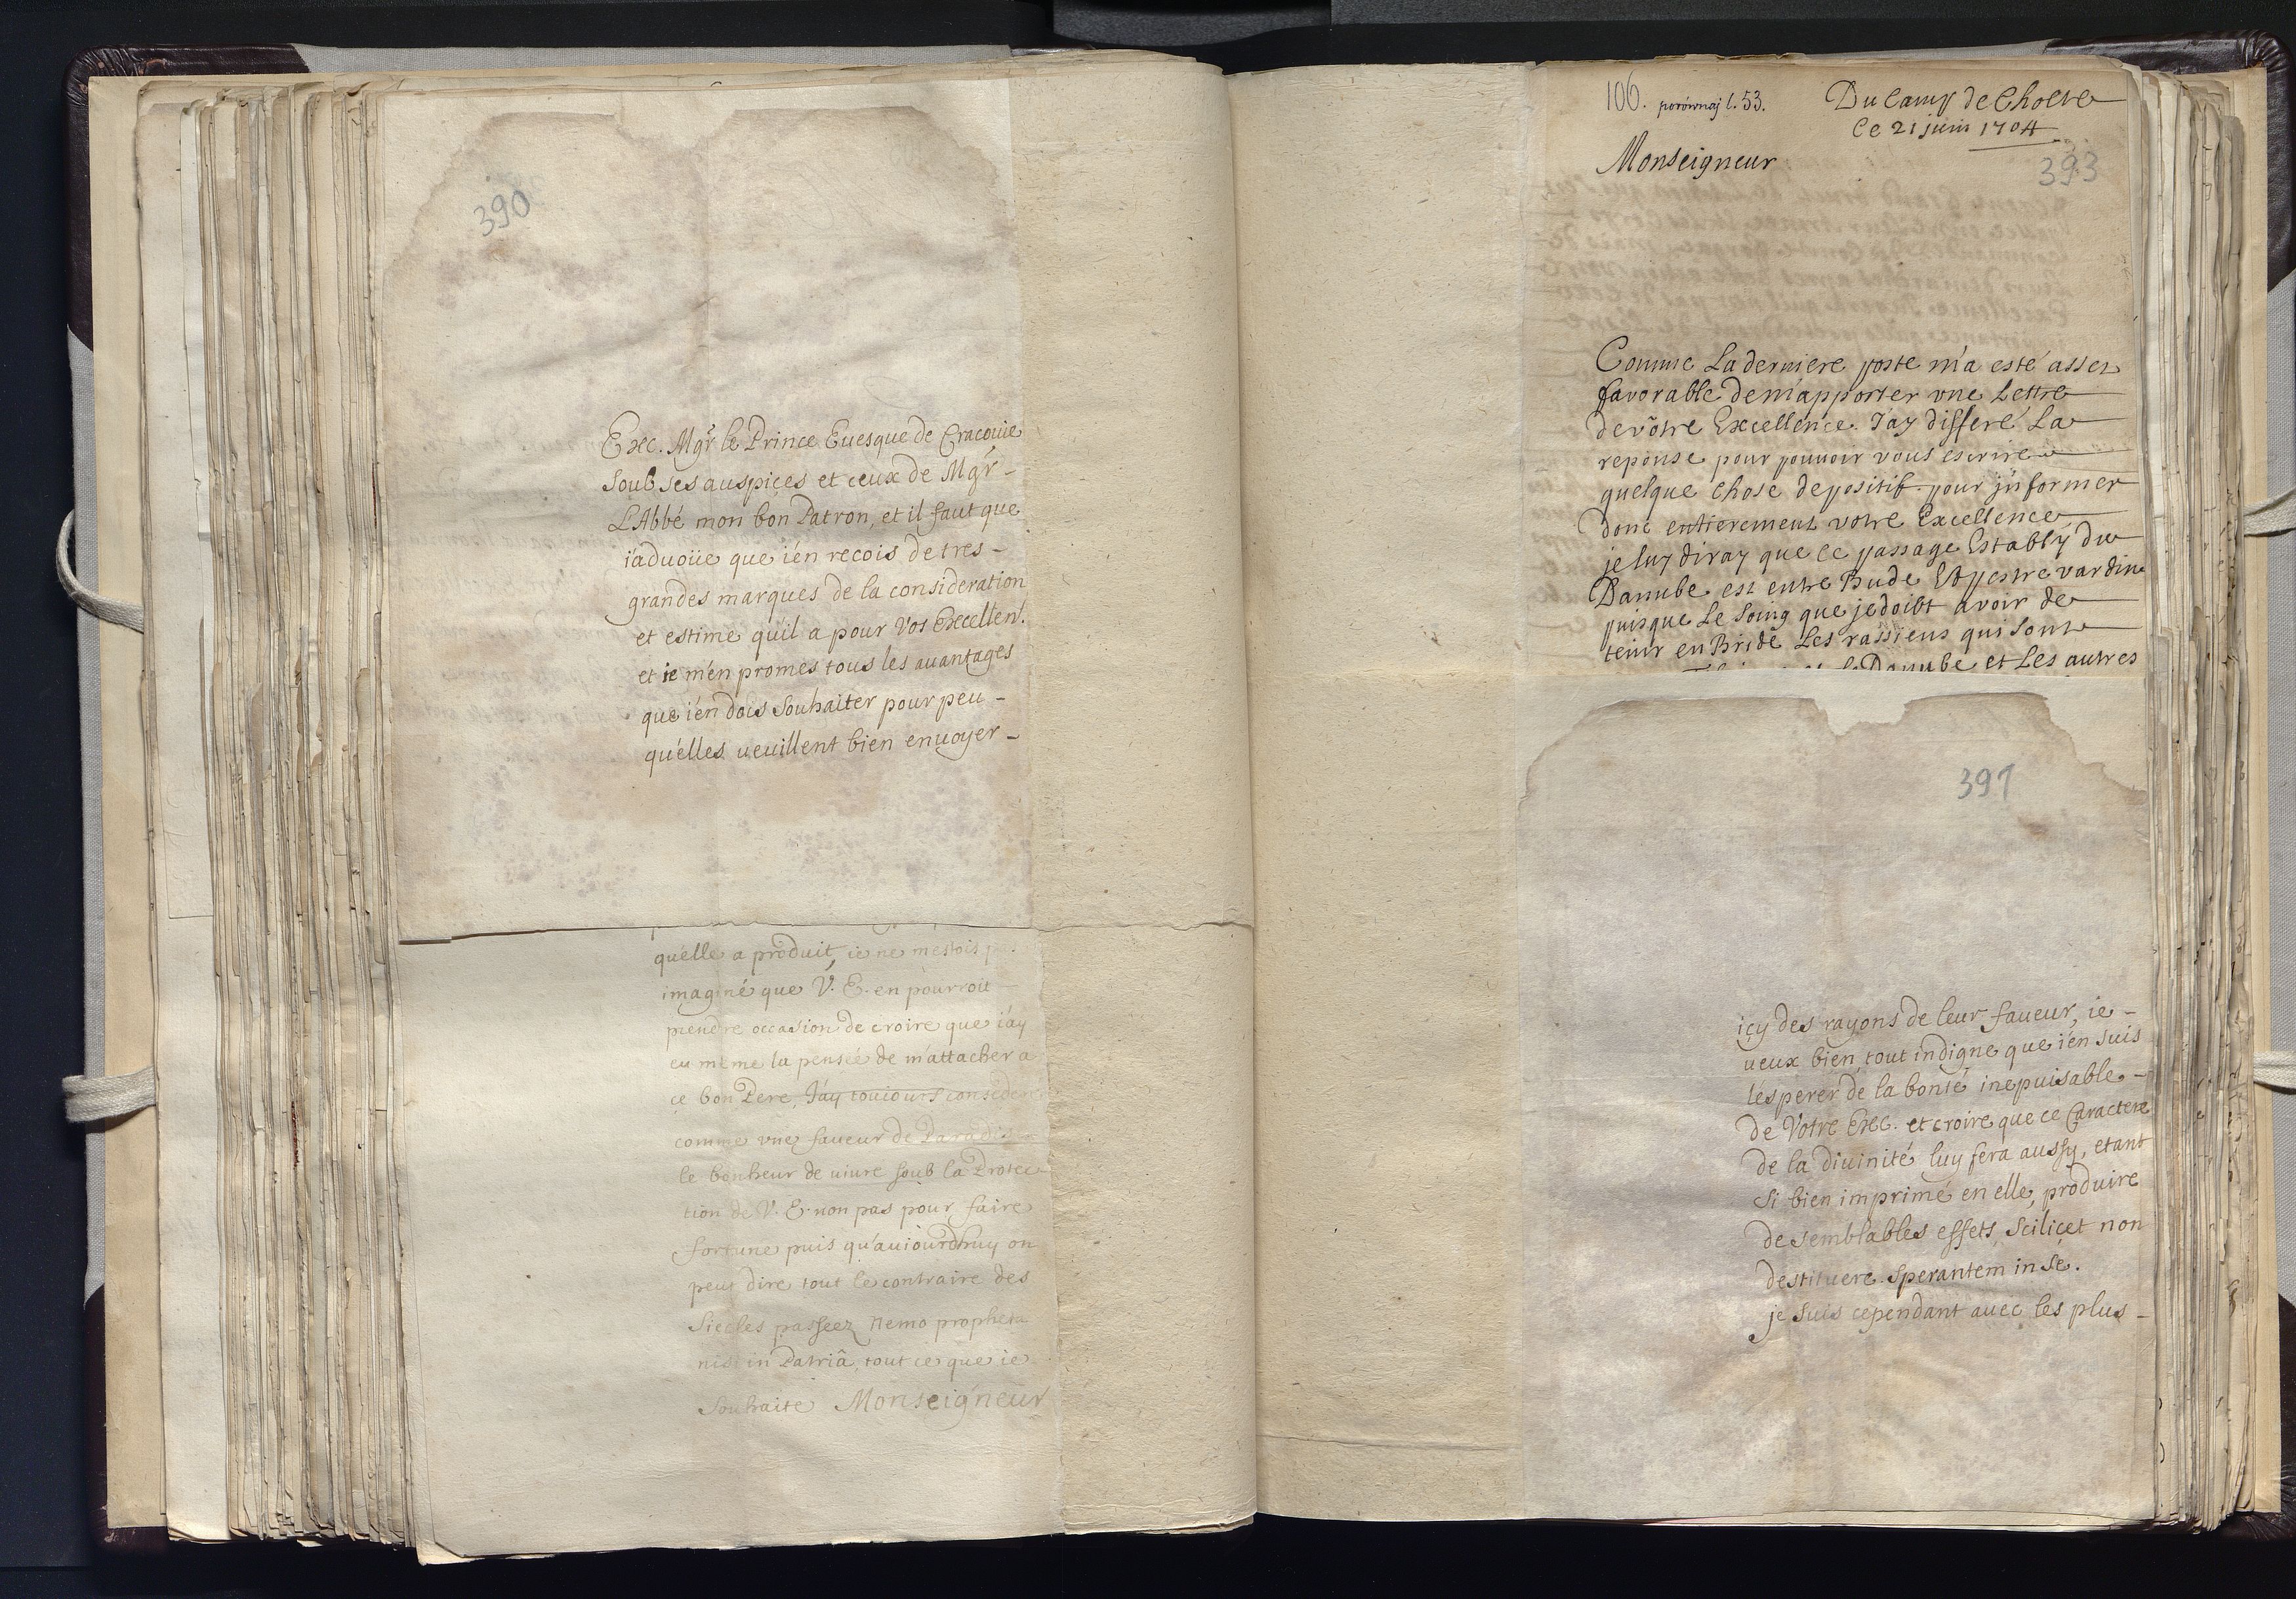 390
Exc. Mgr le Prince Euesque de Cracouie
soub ses auspices et ceux de Mgr -
L'Abbé mon bon Patron, et il faut que
i'aduoüe que i'en recois de tres -
grandes marques de la consideration
et estime qu'il a pour Vos Excellen.
et ie m'en promes tous les auantages
que i'en dois souhaiter pour peu -
qu'elles ueuillent bien enuoyer -
qu'elle a produit, ie ne m'estois
imaginé que V. E. en pourroit
prendre occasion de croire que i'ay
eu même la pensée de m'attacher a
ce bon Pere, J'ay touiours consideré
comme vne faueur de Paradis
le bonheur de uiure soub la Protec-
tion de V. E. non pas pour faire
fortune puis qu'auiourdhuy on
peut dire tout le contraire des
siecles passeez nemo propheta
nisi in Patriâ, tout ce que ie
souhaite Monseigneur
106. porównaj l. 53.
Du Camp de Cholve
Ce 21 juin 1704
393
Monseigneur
Comme La derniere poste m'a esté asses
favorable de m'apporter vne Lettre
de vôtre Excellence. J'ay differé La
reponse pour pouvoir vous escrire
quelque chose de positif. pour jnformer
donc entierement votre Excellence
je luy diray que le passage Estably du
Danube est entre Bude Et pestre vardin
puisque Le soing que je doibt avoir de
tenir en Bride Les rassiens qui sont
Danube et Les autres
391
icy des rayons de leur faueur, ie -
ueux bien tout indigne que i'en suis
l'esperer de la bonté inepuisable -
de Votre Exc. et croire que ce Caractere
de la diuinité luy fera aussy, etant
si bien imprimé en elle, produire
de semblables effets, scilicet non
destituere sperantem in se.
je suis cependant auec les plus -